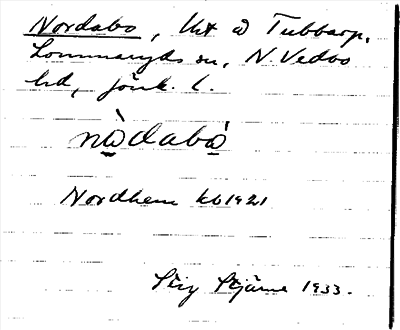 Nordabo, lht u Tubbarp,
Lommaryds sn, N. Vedbo
hd, Jönk. l.
nò̱dabá̱
Nordhem kb 1921
Stig Stjärne 1933.